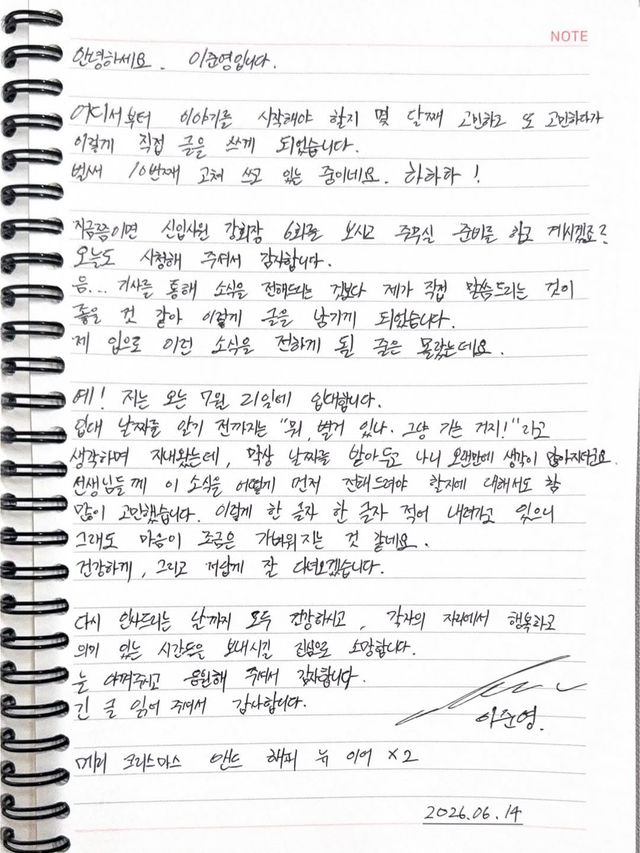 NOTE
안녕하세요. 이준영입니다.
어디서부터 이야기를 시작해야 할지 몇 달째 고민하고 또 고민하다가
이렇게 직접 글을 쓰게 되었습니다.
벌써 10번째 고쳐 쓰고 있는 중이네요. 하하하!
지금쯤이면 신입사원 강회장 6회를 보시고 주무실 준비를 하고 계시겠죠?
오늘도 시청해 주셔서 감사합니다.
음... 기사를 통해 소식을 전해드리는 것보다 제가 직접 말씀드리는 것이
좋을 것 같아 이렇게 글을 남기게 되었습니다.
제 입으로 이런 소식을 전하게 될 줄은 몰랐는데요.
예! 저는 오는 7월 21일에 입대합니다.
입대 날짜를 알기 전까지는 "뭐, 별거 있나. 그냥 가는 거지!"라고
생각하며 지내왔는데, 막상 날짜를 받아두고 나니 오랜만에 생각이 많아지더고요.
선생님들께 이 소식을 어떻게 먼저 전해드려야 할지에 대해서도 참
많이 고민했습니다. 이렇게 한 글자 한 글자 적어 내려가고 있으니
그래도 마음이 조금은 가벼워지는 것 같네요.
건강하게, 그리고 저답게 잘 다녀오겠습니다.
다시 인사드리는 날까지 모두 건강하시고, 각자의 자리에서 행복하고
의미 있는 시간들을 보내시길 진심으로 소망합니다.
늘 아껴주시고 응원해 주셔서 감사합니다.
긴 글 읽어 주셔서 감사합니다.
이준영.
메리 크리스마스 앤드 해피 뉴 이어 x2
2026.06.14